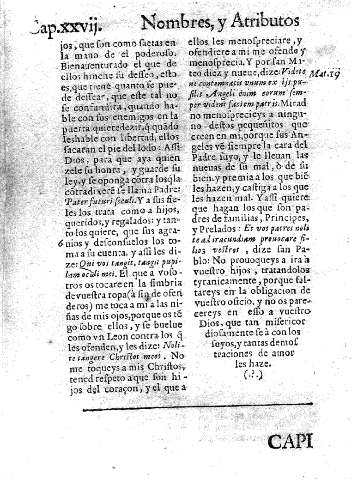 Cap.xxvij. Nombres, y Atributos
jos, que son como saetas en
la mano de el poderoso.
Bienauenturado el que de
ellos hinche su desseo, esto
es, que tiene quanto se pue-
de dessear, que este tal no
se confundirà, quando ha-
ble con sus enemigos en la
puerta quiere dezir, q̃ quãdo
les hable con libertad, ellos
sacaràn el pie del lodo: Assi
Dios, para que aya quien
zele su honra, y guarde su
ley, y se oponga cõtra los q̃ la
cõtradixerẽ se llama Padre:
Pater futuri sæculi. Y a sus fie-
les los trata como a hijos,
queridos, y regalados: y tan-
to los quiere, que sus agra-
6 uios y desconsuelos los to-
ma a su cuenta. y assi les di-
ze: Qui vos tangit, tangit pupi-
lam oculi mei. El que a voso-
tros os tocare en la fimbria
de vuestra ropa (à fin de ofen
deros) me toca a mi à las ni-
ñas de mis ojos, porque os tẽ
go sobre ellos, y se buelue
como vn Leon contra los q̃
les ofenden, y les dize: Noli-
te tangere Christos meos. No
me toqueys a mis Christos,
tened respeto a que son hi-
jos del coraçon, y el que a
ellos les menospreciare, y
ofendiere a mi me ofende y
menosprecia. Y por san Ma-
teo diez y nueue, dize: Videte Mat.19
ne contemnatis vnum ex ijs pu-
silis Angeli enim eorum sem-
per vident faciem patris. Mirad
no menosprecieys a ningu-
no destos pequeñitos que
creen en mi, porque sus An-
geles vẽ siempre la cara del
Padre suyo, y le lleuan las
nueuas de su mal, ò de su
bien, y premia a los que biẽ
les hazen, y castiga a los que
les hazen mal. Y assi quiere
que hagan los que son pa-
dres de familias, Principes,
y Prelados: Et vos patres nolite
ad iracundiam prouocare fi-
lios vestros, dize san Pa-
blo: No prouoqueys a ira à
vuestros hijos, tratandolos
tyranicamente, porque fal-
tareys en la obligacion de
vuestro oficio, y no os pare-
cereys en esso a vuestro
Dios, que tan misericor
diosamente se à con los
suyos, y tantas demos
traciones de amor
les haze.
(.?.)
CAPI